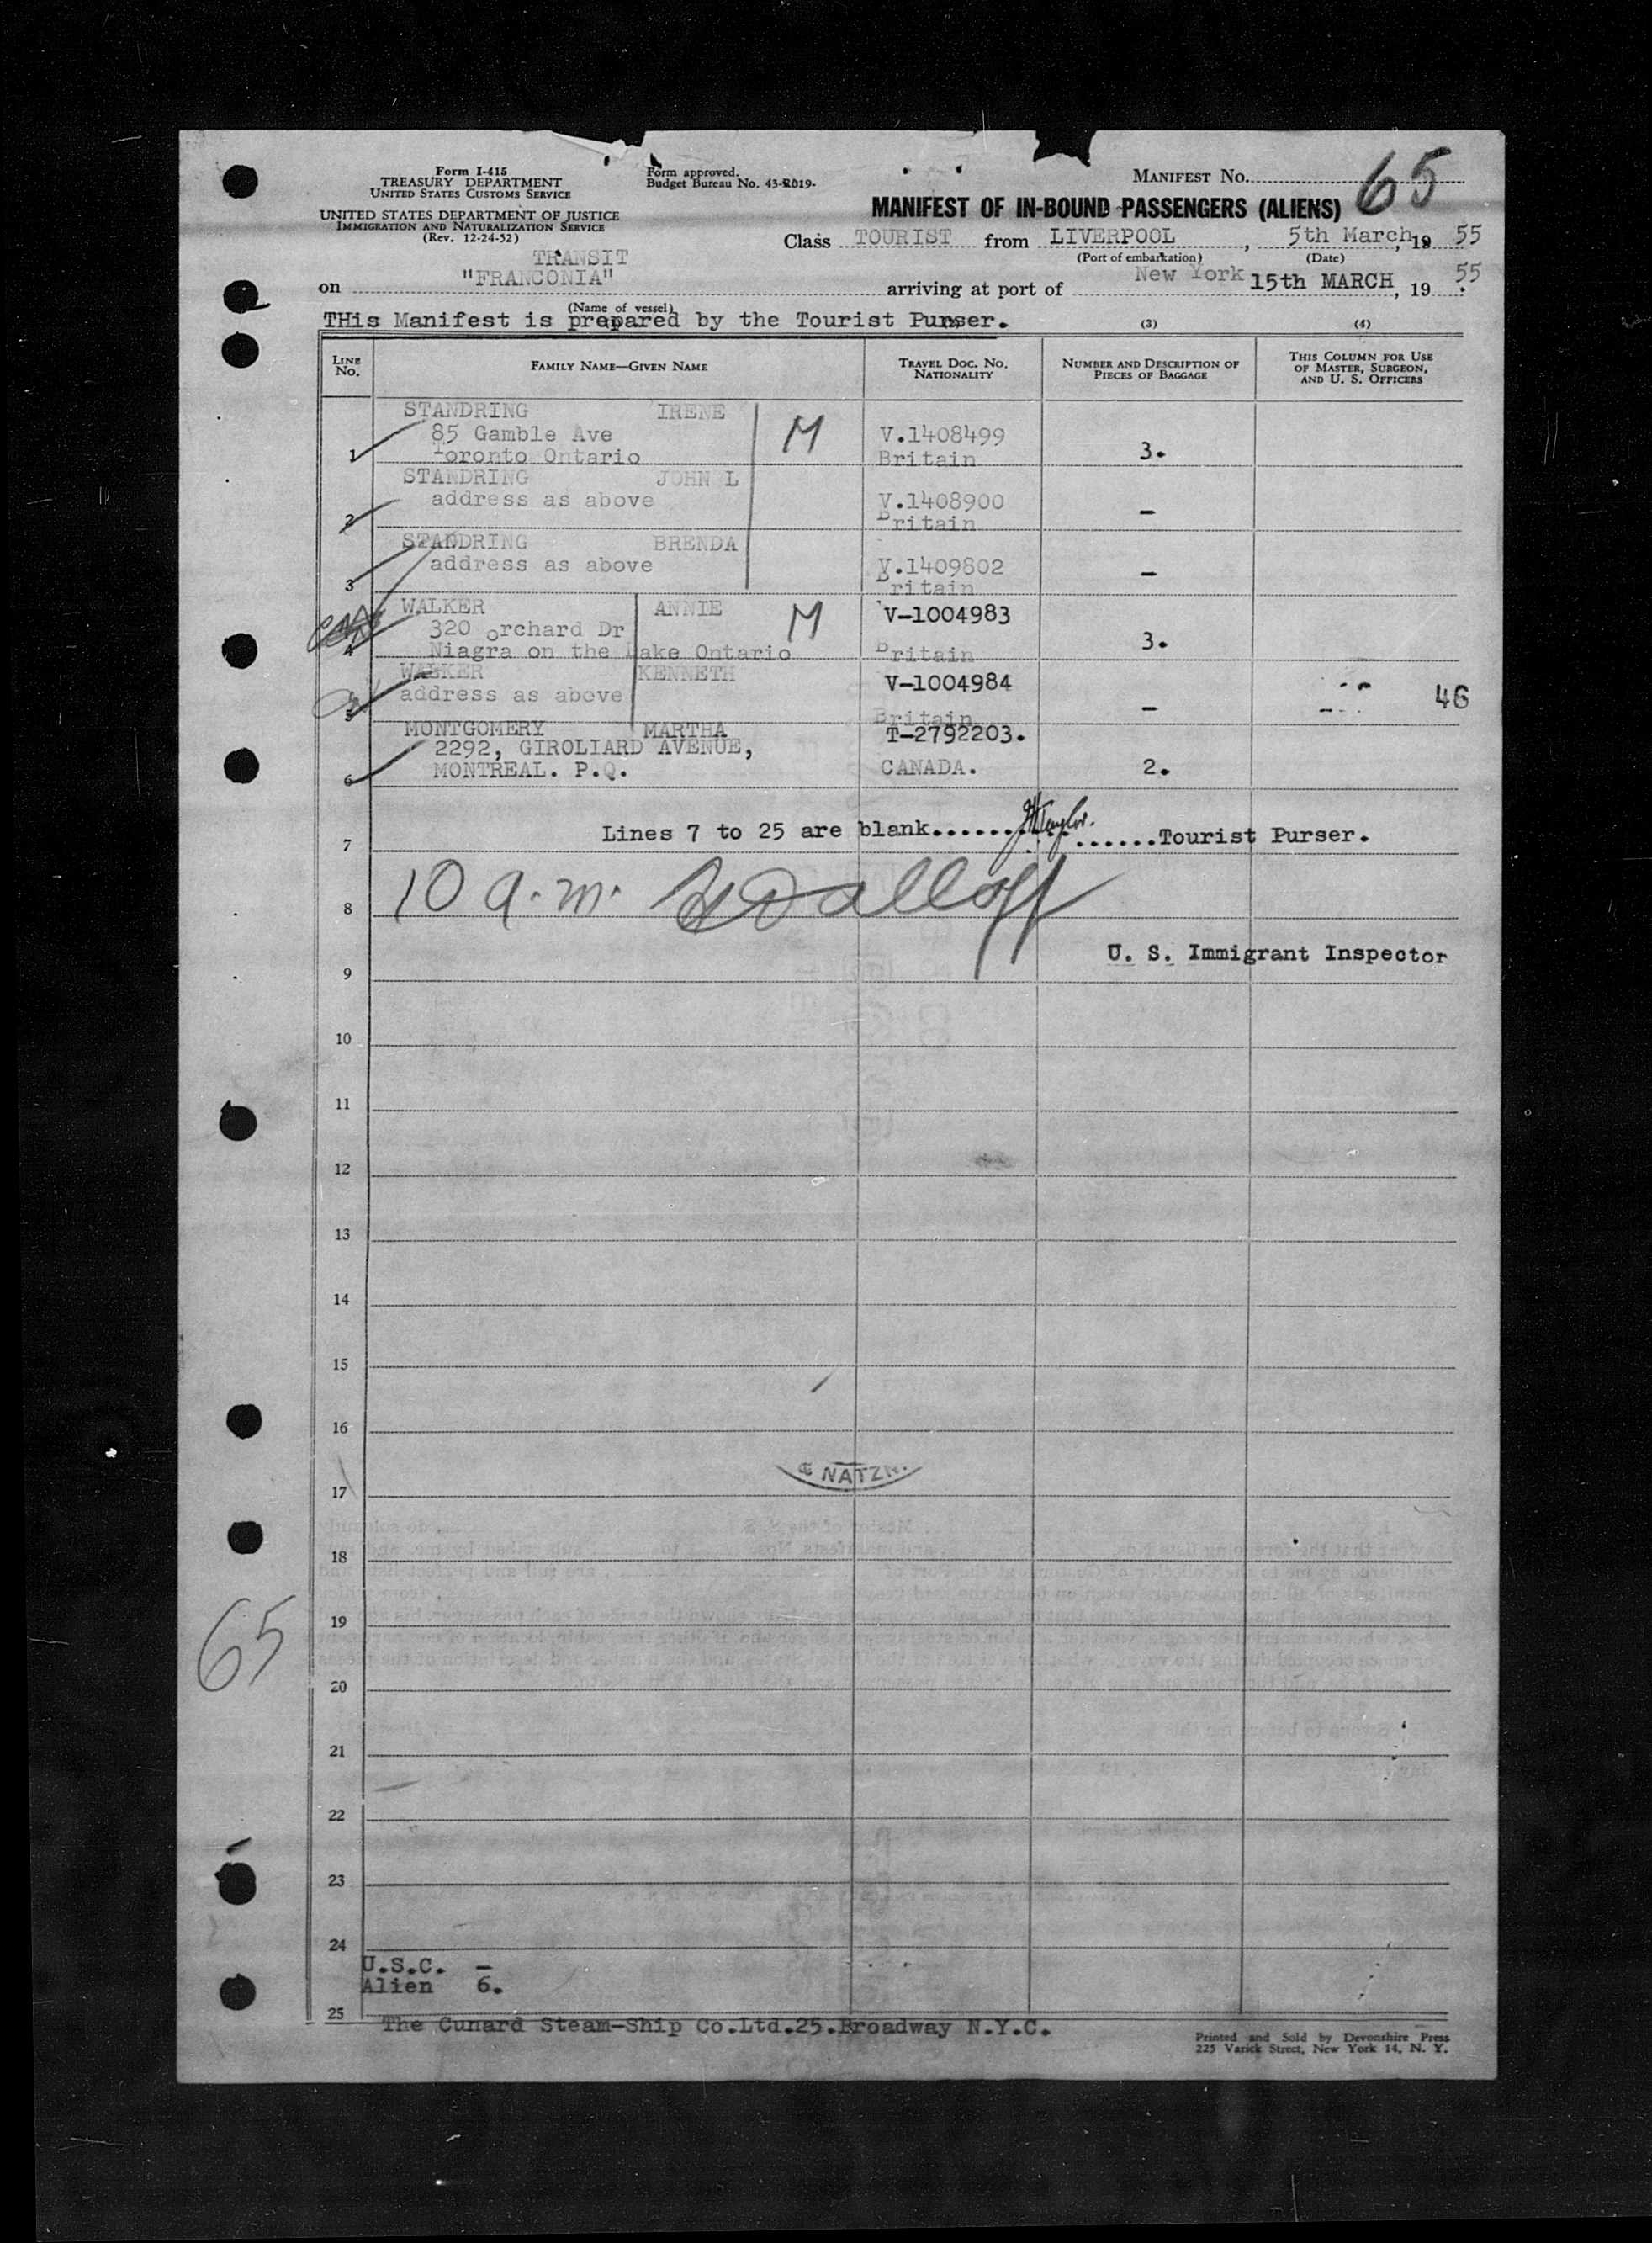 Form I-415
TREASURY DEPARTMENT
UNITED STATES CUSTOMS SERVICE
UNITED STATES DEPARTMENT OF JUSTICE
IMMIGRATION AND NATURALIZATION SERVICE
(Rev. 12-24-52)
Form approved.
Budget Bureau No. 43-R019-
MANIFEST No. 65
MANIFEST OF IN-BOUND PASSENGERS (ALIENS)
Class TOURIST from LIVERPOOL, 5th March, 19 55
(Port of embarkation) (Date)
TRANSIT
on "FRANCONIA" arriving at port of New York 15th MARCH, 19 55.
(Name of vessel)
THis Manifest is prepared by the Tourist Purser.
(3) (4)
LINE No. FAMILY NAME—GIVEN NAME TRAVEL DOC. NO. NATIONALITY NUMBER AND DESCRIPTION OF PIECES OF BAGGAGE THIS COLUMN FOR USE OF MASTER, SURGEON, AND U. S. OFFICERS
STANDRING IRENE M
85 Gamble Ave V.1408499
1 Toronto Ontario Britain 3.
STANDRING JOHN L
address as above V.1408900
2 Britain -
STANDRING BRENDA
address as above V.1409802
3 Britain -
WALKER ANNIE M V-1004983
320 orchard Dr
4 Niagra on the Lake Ontario Britain 3.
WALKER KENNETH V-1004984
address as above 46
5 Britain -
MONTGOMERY MARTHA T-2792203.
2292, GIROLIARD AVENUE,
6 MONTREAL. P.Q. CANADA. 2.
7 Lines 7 to 25 are blank...... Taylor. ......Tourist Purser.
8 10 a.m.
U. S. Immigrant Inspector
9
10
11
12
13
14
15
16
& NATZN.
17
18
19
65
20
21
22
23
24
U.S.C. -
Alien 6.
25
The Cunard Steam-Ship Co.Ltd.25.Broadway N.Y.C.
Printed and Sold by Devonshire Press
225 Varick Street, New York 14, N. Y.